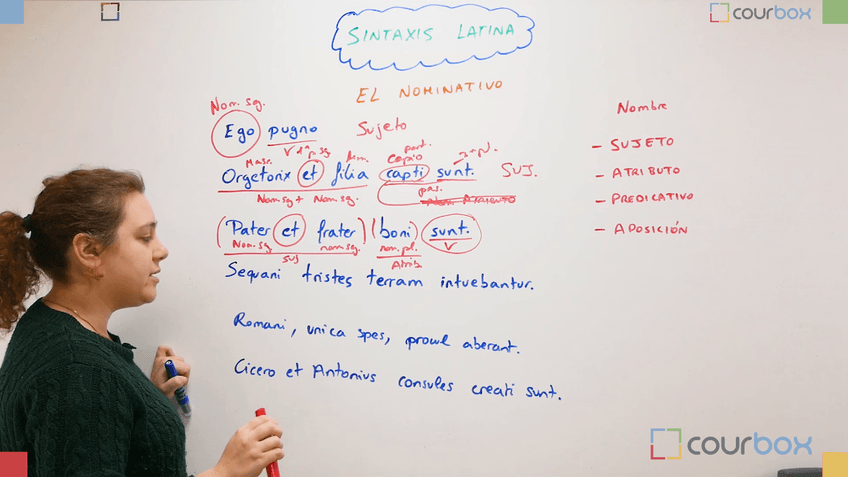 courbox
SINTAXIS LATINA
EL NOMINATIVO
Nom. sg.
Ego pugno Sujeto
V 1ª p. sg
Masc. fem. part. capio 3ª pl.
Orgetorix et filia capti sunt. SUJ.
Nom sg + Nom sg. pas.
ATRIBUTO
(Pater et frater) (boni) sunt.
Nom. sg nom sg. nom. pl. V
suj Atrib
Sequani tristes terram intuebantur.
Romani, unica spes, procul aberant.
Cicero et Antonius consules creati sunt.
Nombre
- SUJETO
- ATRIBUTO
- PREDICATIVO
- APOSICIÓN
courbox